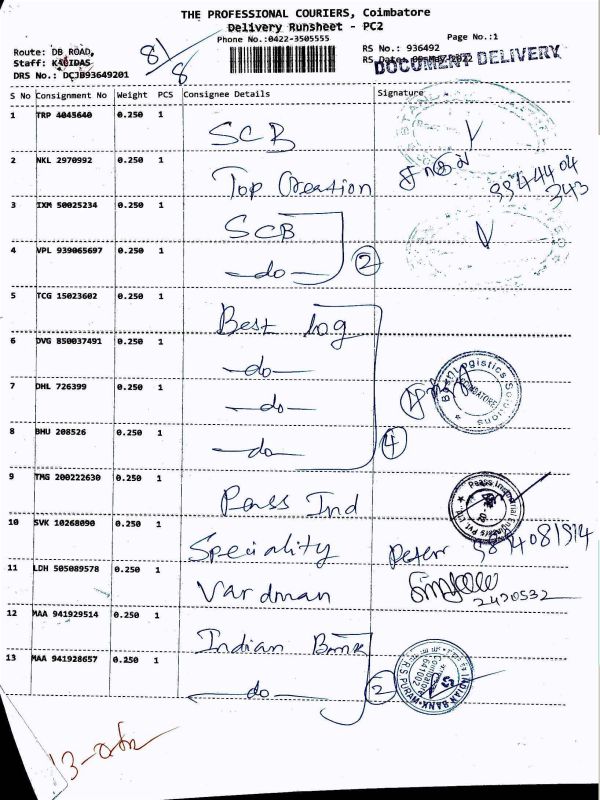 THE PROFESSIONAL COURIERS, Coimbatore
Delivery Runsheet - PC2
Phone No.:0422-3505555
Page No.:1
Route: DB ROAD,
Staff: KALIDAS
DRS No.: DCJB93649201
8/8
RS No.: 936492
RS Date: 09-May-2022
DOCUMENT DELIVERY
S No Consignment No Weight PCS Consignee Details Signature
1 TRP 4045640 0.250 1 SCB
2 NKL 2970992 0.250 1 Top Creation 9944404 343
3 IXM 50025234 0.250 1 SCB
4 VPL 939065697 0.250 1 —do— 2
5 TCG 15023602 0.250 1 Best log
6 DVG 850037491 0.250 1 —do—
7 DHL 726399 0.250 1 —do— Best Logistics Solutions COIMBATORE
8 BHU 208526 0.250 1 —do— 4
9 TMG 200222630 0.250 1 Pass Ind
10 SVK 10268090 0.250 1 Speciality Peter
11 LDH 505089578 0.250 1 Vardman 2420532
12 MAA 941929514 0.250 1 Indian Bank
13 MAA 941928657 0.250 1 —do— 2 INDIAN BANK R S PURAM Coimbatore 641002
13-